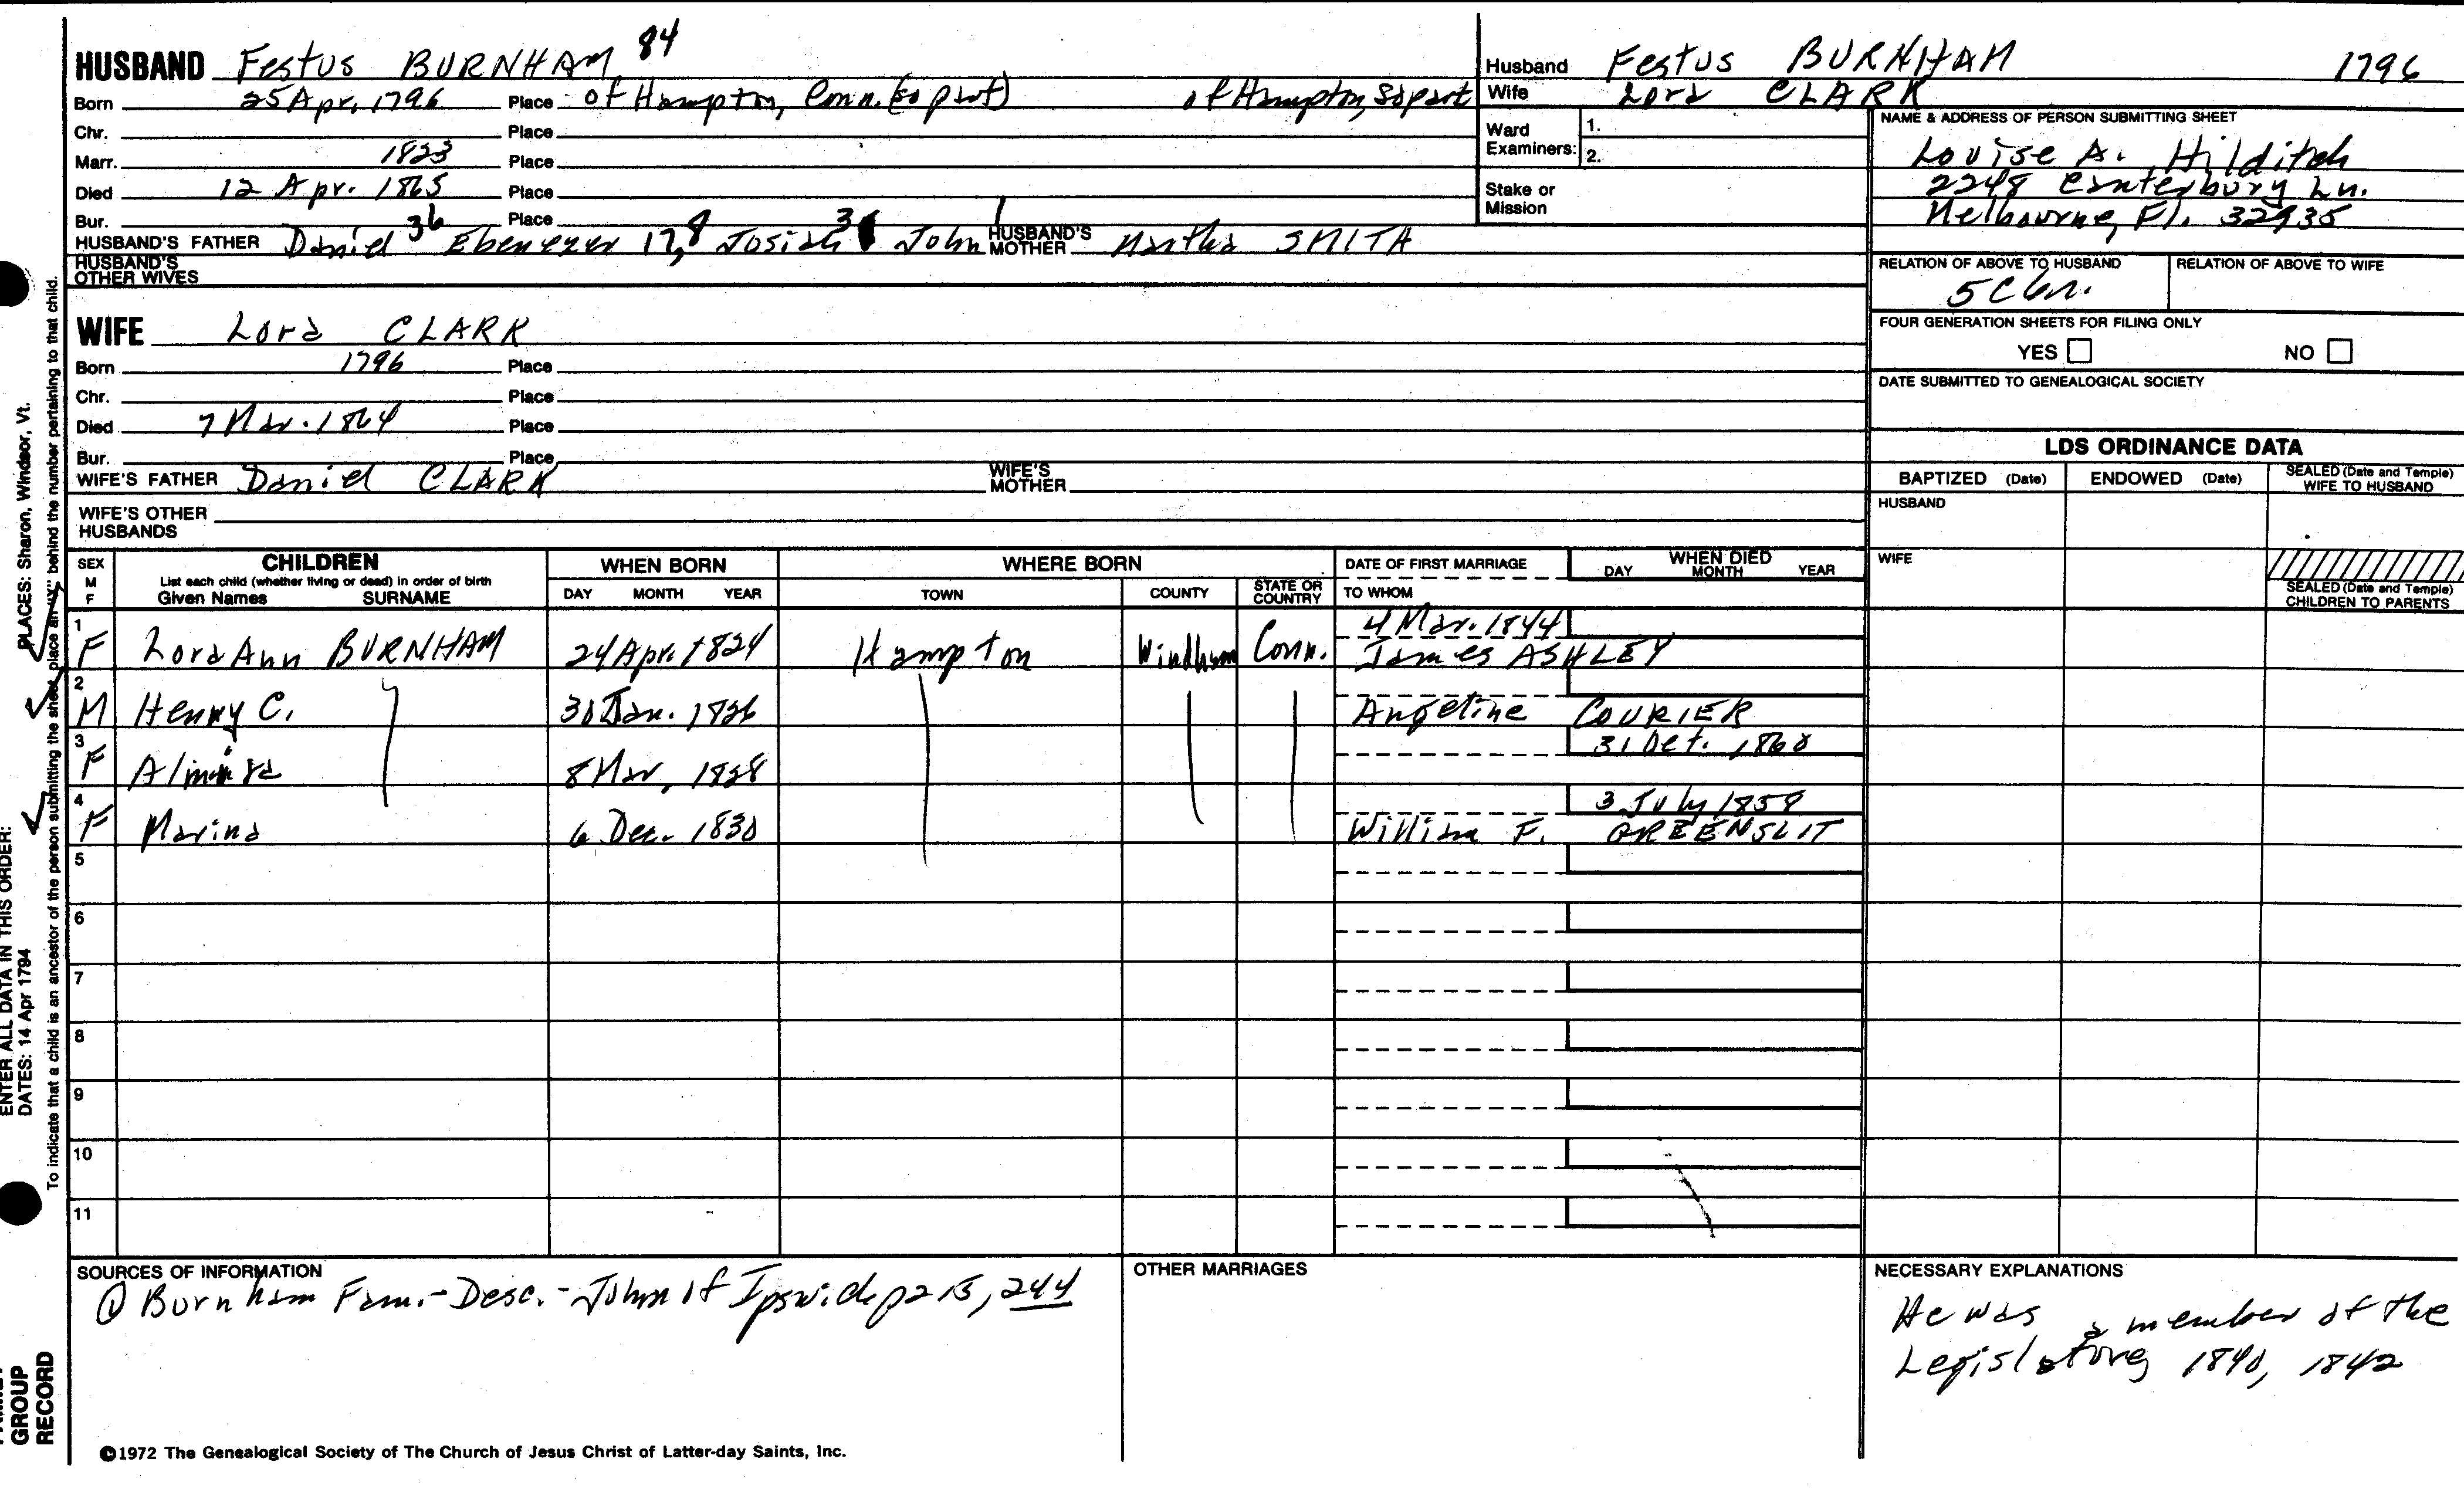 HUSBAND Festus BURNHAM 84
Born 25 Apr. 1796 Place of Hampton, Conn. (So part) of Hampton, So part
Chr. Place
Marr. 1823 Place
Died 12 Apr. 1865 Place
Bur. Place
HUSBAND'S FATHER Daniel 36 Ebenezer 17, 8 Josiah 3 John 1 HUSBAND'S MOTHER Martha SMITH
HUSBAND'S OTHER WIVES
WIFE Lora CLARK
Born 1796 Place
Chr. Place
Died 7 Mar. 1864 Place
Bur. Place
WIFE'S FATHER Daniel CLARK WIFE'S MOTHER
WIFE'S OTHER HUSBANDS
Husband Festus BURNHAM 1796
Wife Lora CLARK
Ward Examiners: 1.
2.
Stake or Mission
NAME & ADDRESS OF PERSON SUBMITTING SHEET
Louise A. Hilditch
2248 Canterbury Ln.
Melbourne, Fl. 32935
RELATION OF ABOVE TO HUSBAND RELATION OF ABOVE TO WIFE
5C
FOUR GENERATION SHEETS FOR FILING ONLY
YES NO
DATE SUBMITTED TO GENEALOGICAL SOCIETY
LDS ORDINANCE DATA
BAPTIZED (Date) ENDOWED (Date) SEALED (Date and Temple) WIFE TO HUSBAND
HUSBAND
WIFE
SEALED (Date and Temple) CHILDREN TO PARENTS
SEX M F CHILDREN List each child (whether living or dead) in order of birth Given Names SURNAME WHEN BORN DAY MONTH YEAR WHERE BORN TOWN COUNTY STATE OR COUNTRY DATE OF FIRST MARRIAGE TO WHOM WHEN DIED DAY MONTH YEAR
1 4 Mar. 1844
F Lora Ann BURNHAM 24 Apr. 1824 Hampton Windham Conn. James ASHLEY
2
M Henry C. 30 Jan. 1826 Angeline COURIER
3 31 Oct. 1860
F Almira 8 Mar. 1828
4 3 July 1858
F Marina 6 Dec. 1830 William F. GREENSLIT
5
6
7
8
9
10
11
SOURCES OF INFORMATION
① Burnham Fam. - Desc. - John of Ipswich p 215, 244
OTHER MARRIAGES
NECESSARY EXPLANATIONS
He was a member of the
Legislature 1840, 1842
©1972 The Genealogical Society of The Church of Jesus Christ of Latter-day Saints, Inc.
PLACES: Sharon, Windsor, Vt.
ENTER ALL DATA IN THIS ORDER:
DATES: 14 Apr 1794
To indicate that a child is an ancestor of the person submitting the sheet, place an "X" behind the number pertaining to that child.
GROUP
RECORD